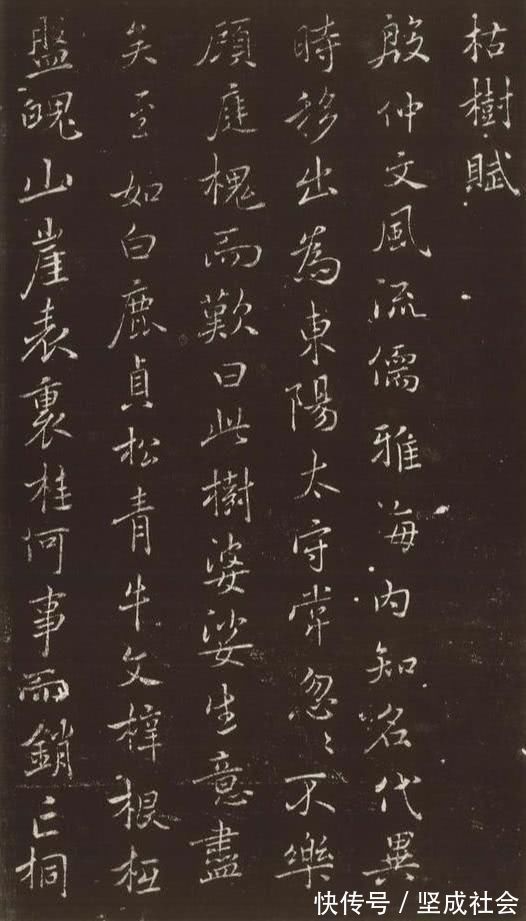 枯樹賦
殷仲文風流儒雅海内知名代異
時移出為東陽太守常忽〻不樂
顧庭槐而歎曰此樹婆娑生意盡
矣至如白鹿貞松青牛文梓根柢
盤魄山崖表裏桂何事而銷亡桐
快传号 / 坚成社会